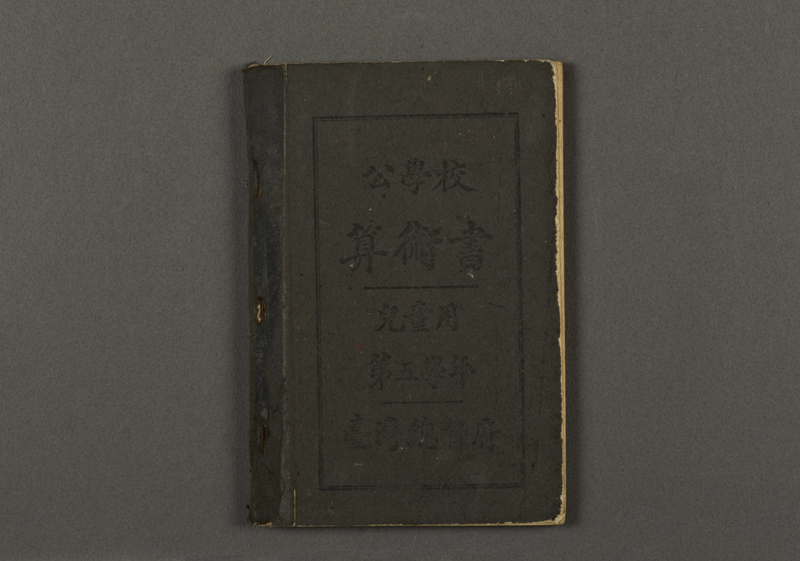 公學校
算術書
兒童用
第五學年
臺灣總督府